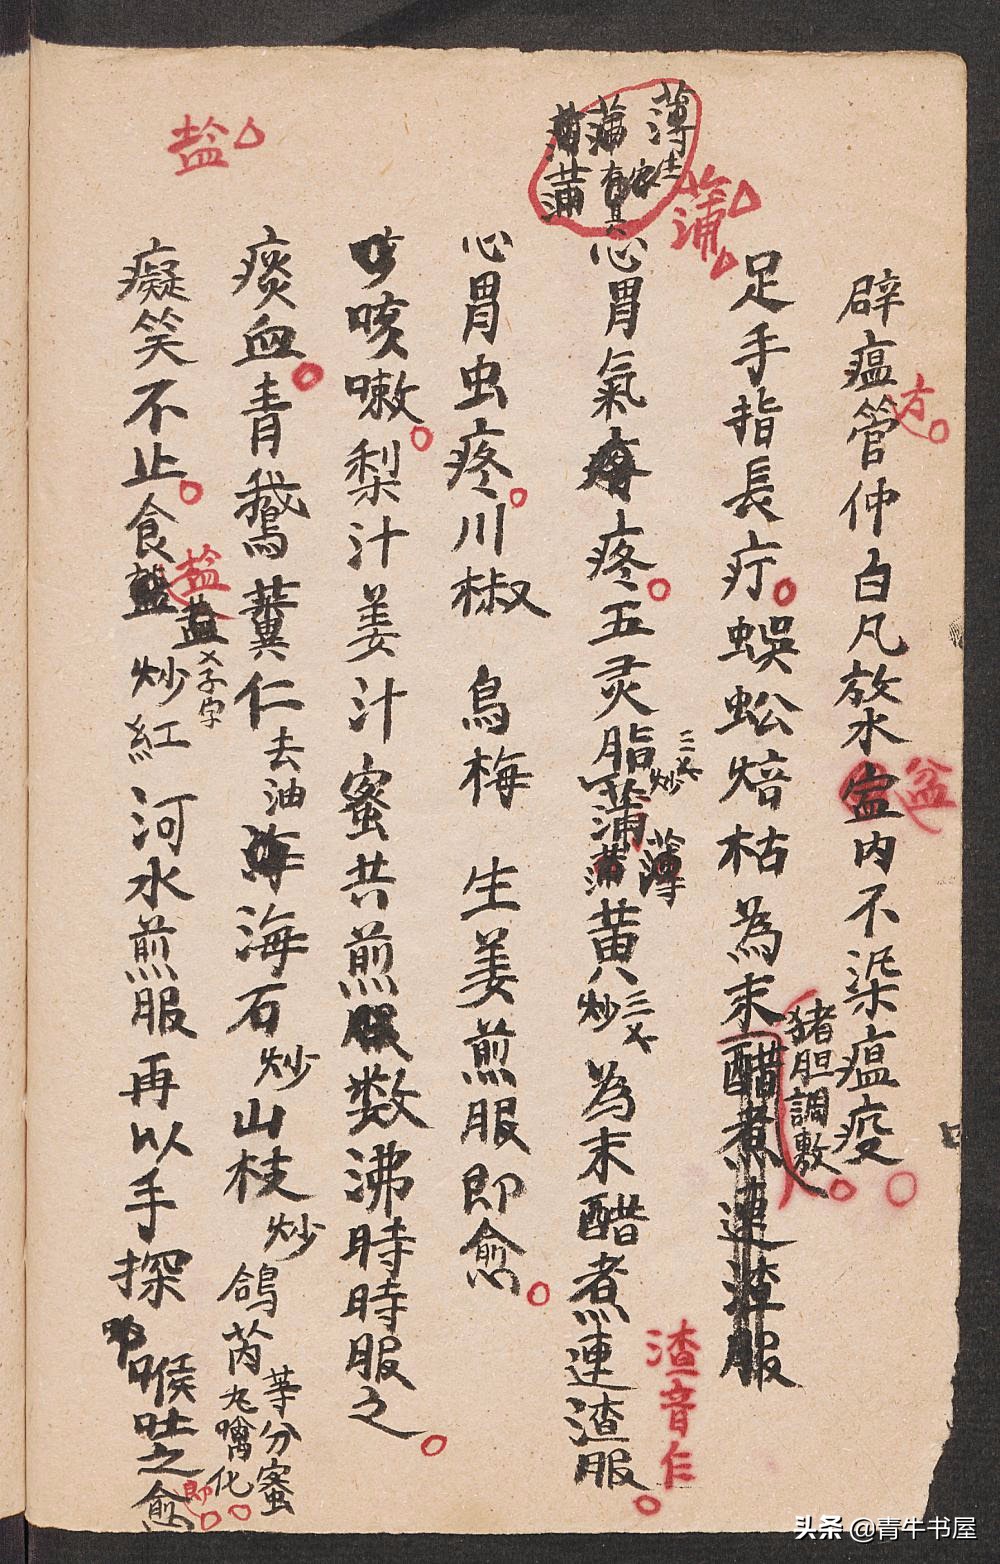 辟瘟管仲白凡放水内不染瘟疫
方
盆
足手指長疔蜈蚣焙枯為末醋煮連渣服
猪胆調敷
薄
蒲
心胃氣疼五灵脂炒二不蒲黄炒三不為末醋煮連渣服
薄
渣音乍
心胃虫疼川椒 烏梅 生姜煎服即愈
咳嗽梨汁姜汁蜜共煎数沸時時服之
痰血青鵝蕢仁去油海石炒山枝炒鴿芮等分蜜丸噙化
癡笑不止食盐炒紅河水煎服再以手探喉吐之即愈
盐
头条 @青牛书屋